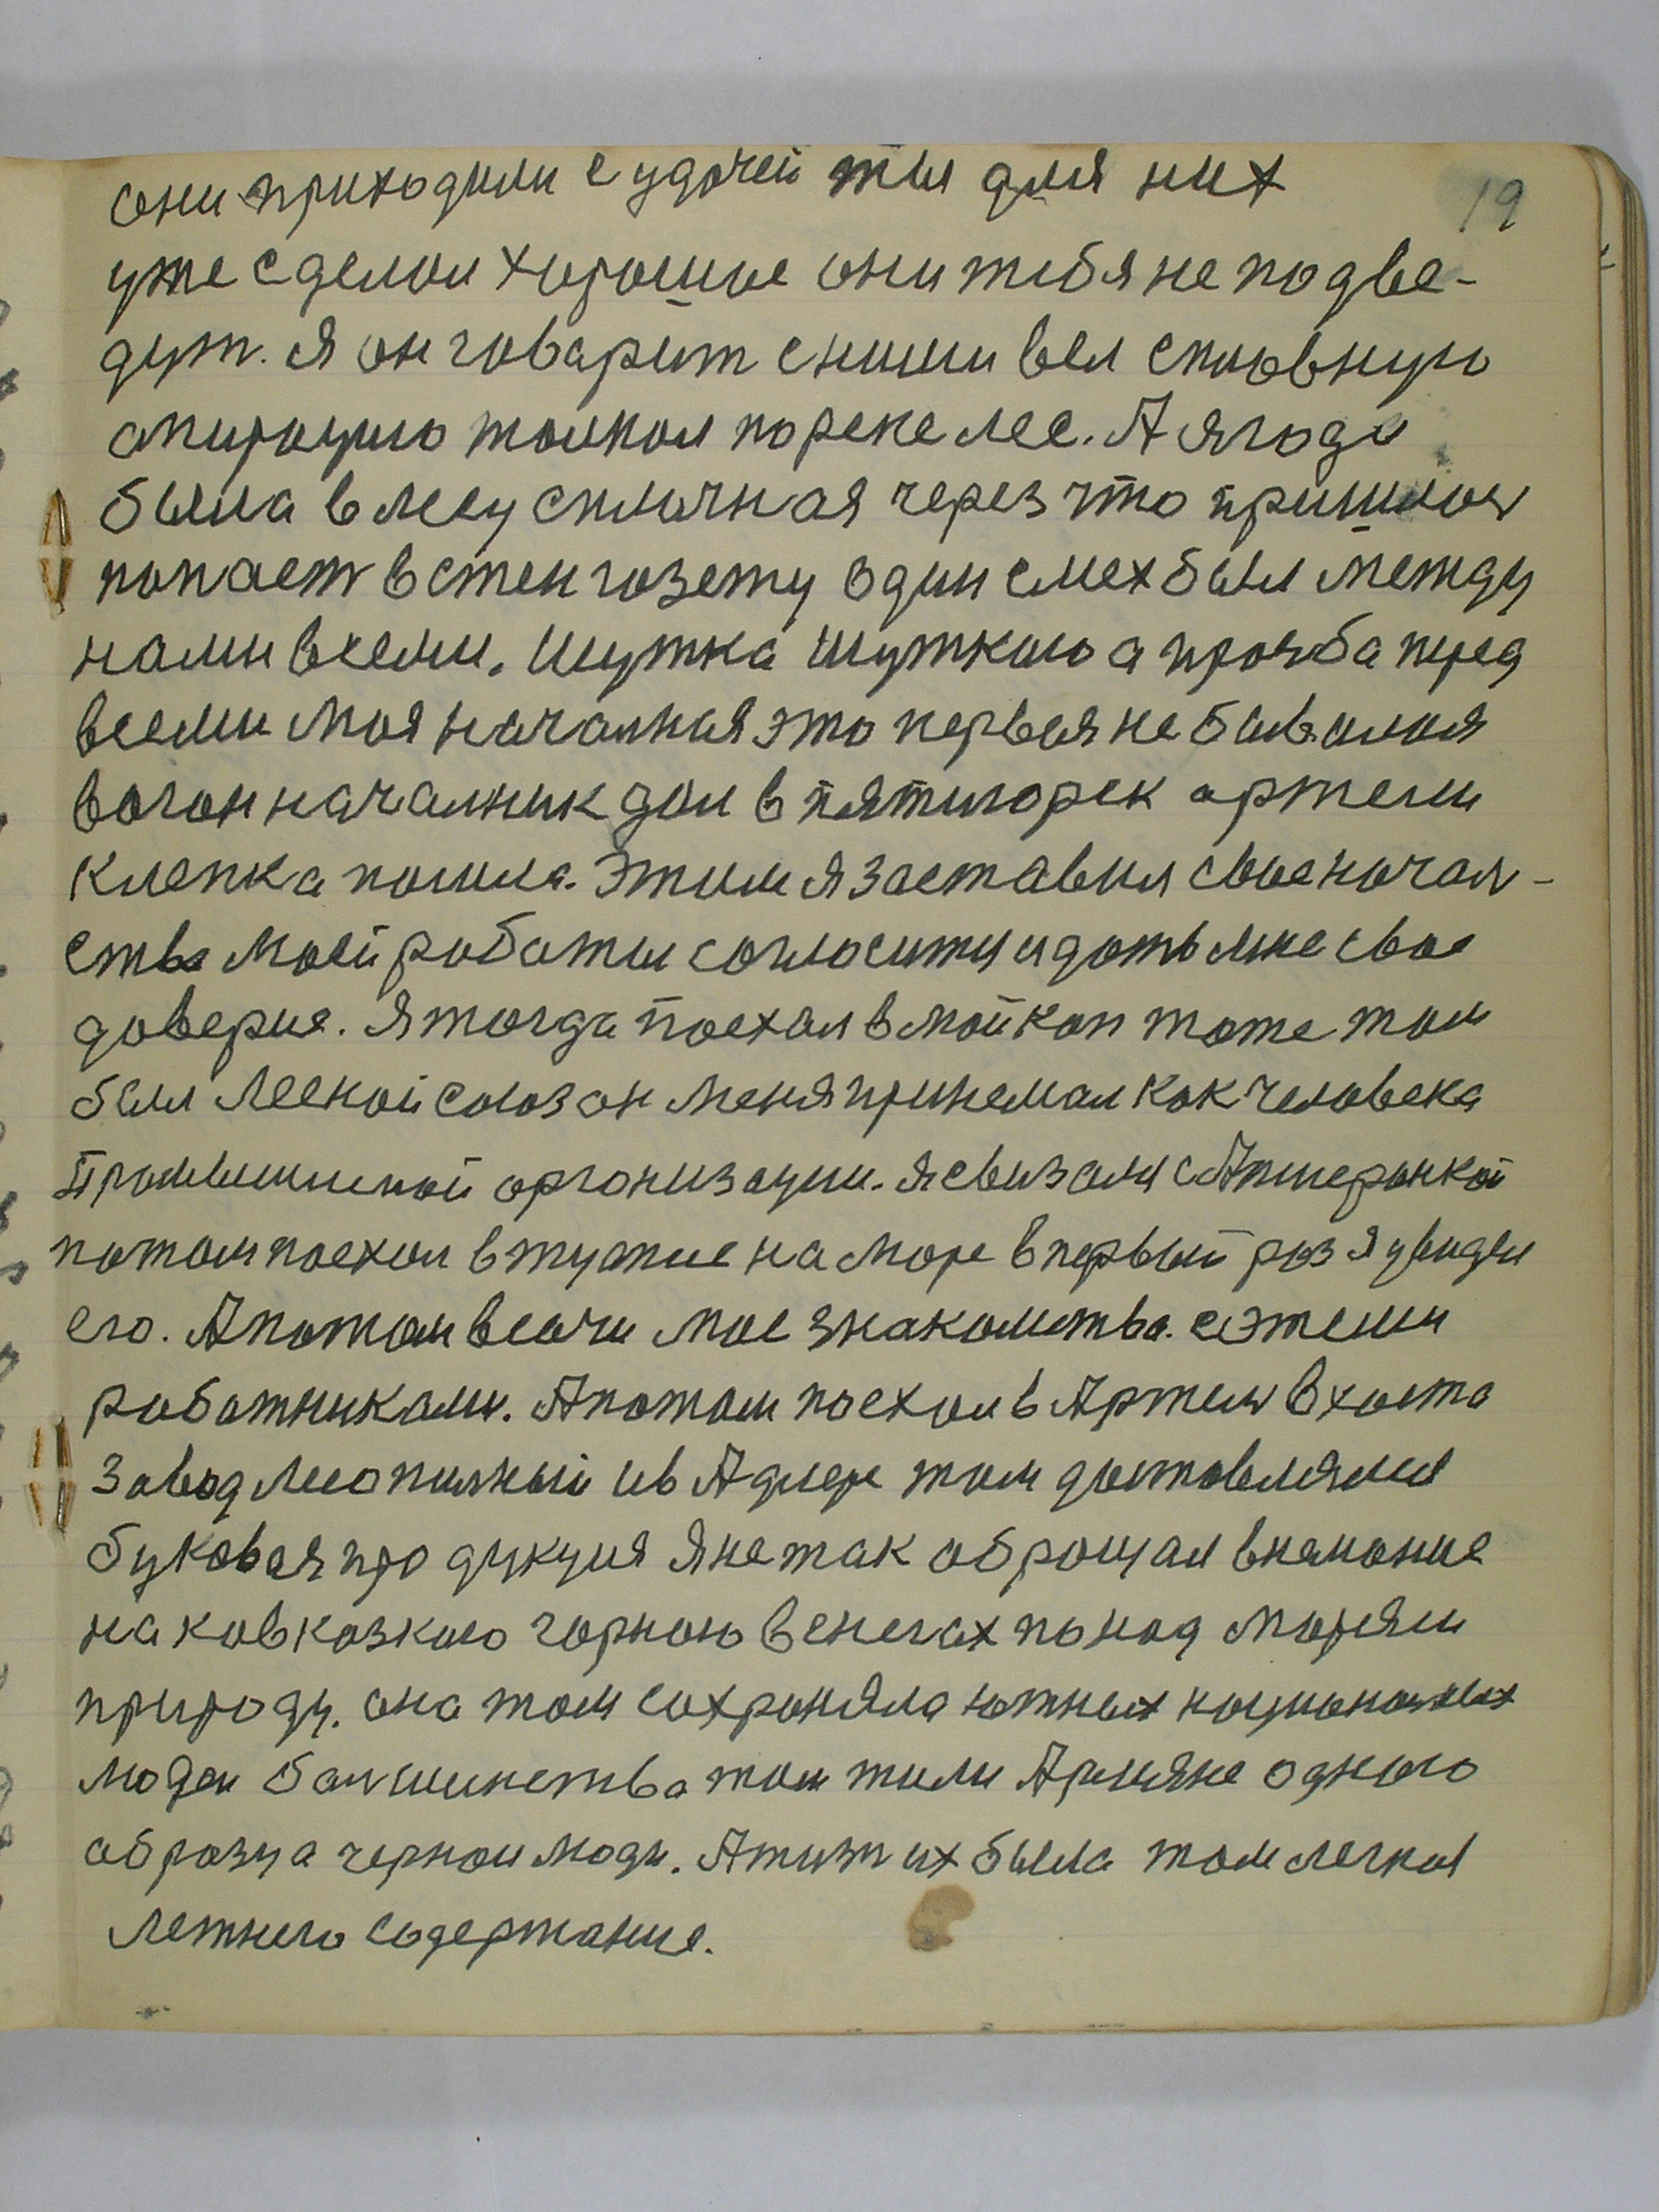 они приходили с удачей ты для них
19
уже сделал хорошое они тебя не подве-
дут. Я он говарит с ними вел сплавную
апирацию толкал по реке лес. А ягода
была в лесу сплочная через что пришлось
попаст в стенгазету один смех был между
нами всеми. Шутка шуткаю а прозба перед
всеми моя началная это первая не бывалая
вагон началник дал в пятигорск артели
клепка пошла. Этим я заставил свое начал-
ства моей работы согласится и дать мне свое
доверие. Я тогда поехал в майкоп тоже там
был Лесной союз он меня принемал как человека
Прамышленой организации. я свизался с Апшеронкой
потом поехал в туапсие на море в первый раз я увидел
его. А потом в сочи мое знакомства. с этеми
работниками. А потом поехал в Артель в хоста
завод Лесопилный и в Адлере там доставлялися
буковая продукция Я не так обращал внемание
на кавказкаю горнаю в снегах по над морям
природу. она там сохраняла южных националных
людей болшинства там жили Армяне одного
образца черной люди. А тиж их была там легкая
летнего содержание.